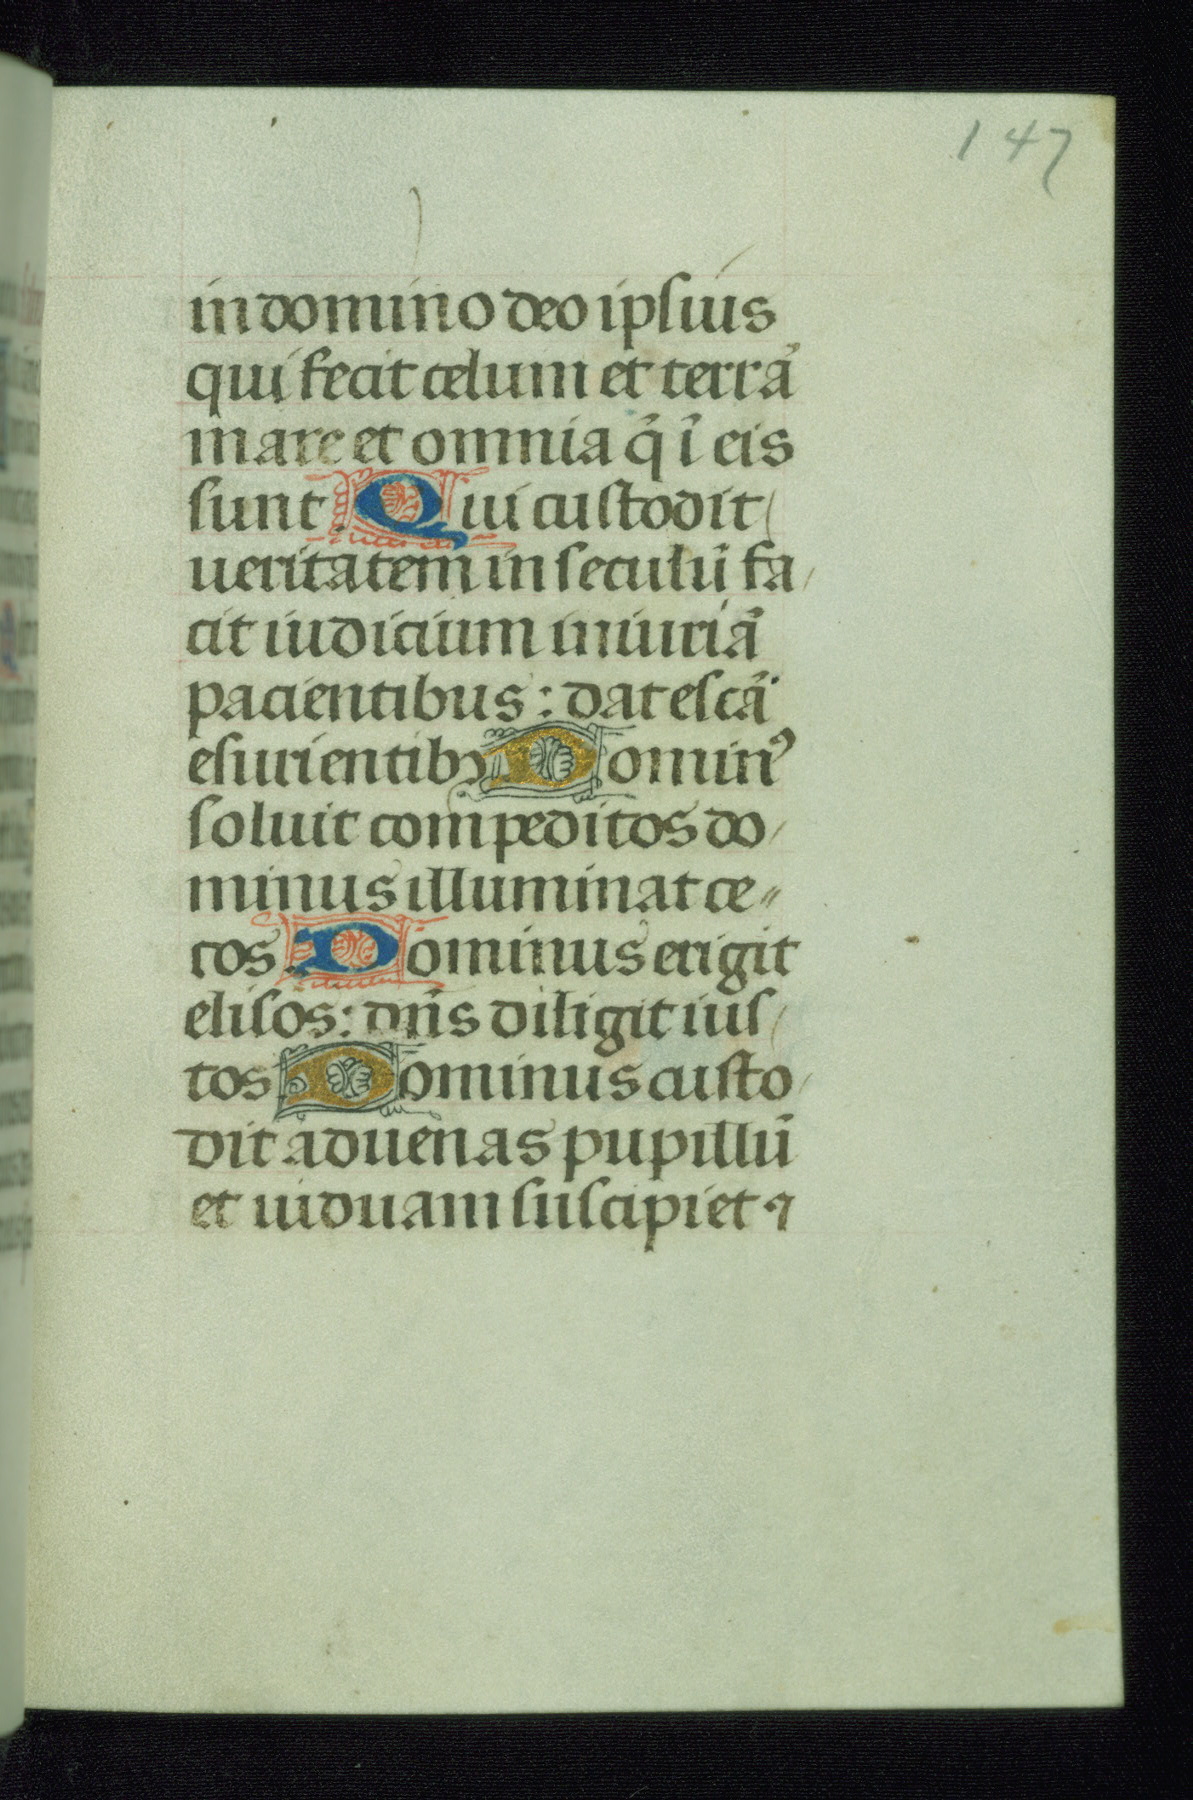 147
in domino deo ipsius
qui fecit celum et terrã
mare et omnia q̃ ĩ eis
sunt. Qui custodit
ueritatem in seculũ fa
cit iudicium iniuriã
pacientibus: dat escã
esurientibꝫ. Dominꝰ
soluit compeditos do
minus illuminat ce
cos. Dominus erigit
elisos: dñs diligit ius
tos. Dominus custo
dit aduenas pupillũ
et uiduam suscipiet ⁊